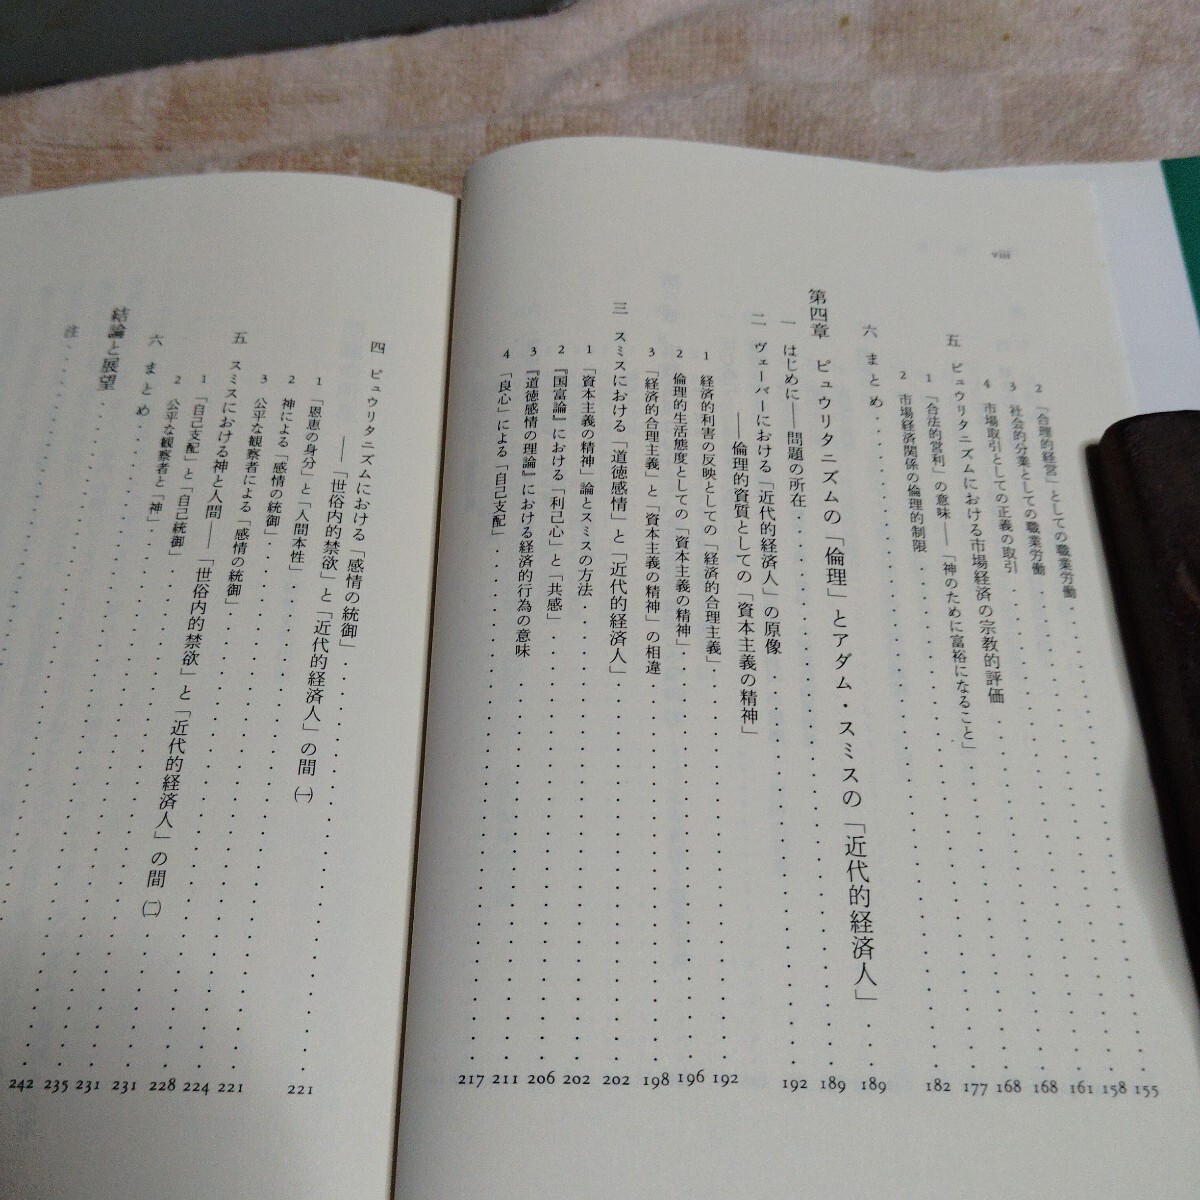 viii
2 「合理的経営」としての職業労働 155
3 社会的分業としての職業労働 158
4 市場取引としての正義の取引 161
五 ピュウリタニズムにおける市場経済の宗教的評価 168
1 「合法的営利」の意味——「神のために富裕になること」 168
2 市場経済関係の倫理的制限 177
六 まとめ 182
第四章 ピュウリタニズムの「倫理」とアダム・スミスの「近代的経済人」 189
一 はじめに——問題の所在 189
二 ヴェーバーにおける「近代的経済人」の原像
——倫理的資質としての「資本主義の精神」 192
1 経済的利害の反映としての「経済的合理主義」 192
2 倫理的生活態度としての「資本主義の精神」 196
3 「経済的合理主義」と「資本主義の精神」の相違 198
三 スミスにおける「道徳感情」と「近代的経済人」 202
1 「資本主義の精神」論とスミスの方法 202
2 『国富論』における「利己心」と「共感」 206
3 『道徳感情の理論』における経済的行為の意味 211
4 「良心」による「自己支配」 217
四 ピュウリタニズムにおける「感情の統御」
——「世俗内的禁欲」と「近代的経済人」の間 ㈠ 221
1 「恩恵の身分」と「人間本性」 221
2 神による「感情の統御」 224
3 公平な観察者による「感情の統御」 228
五 スミスにおける神と人間——「世俗内的禁欲」と「近代的経済人」の間 ㈡ 231
1 「自己支配」と「自己統御」 231
2 公平な観察者と「神」 235
六 まとめ 242
結論と展望
注